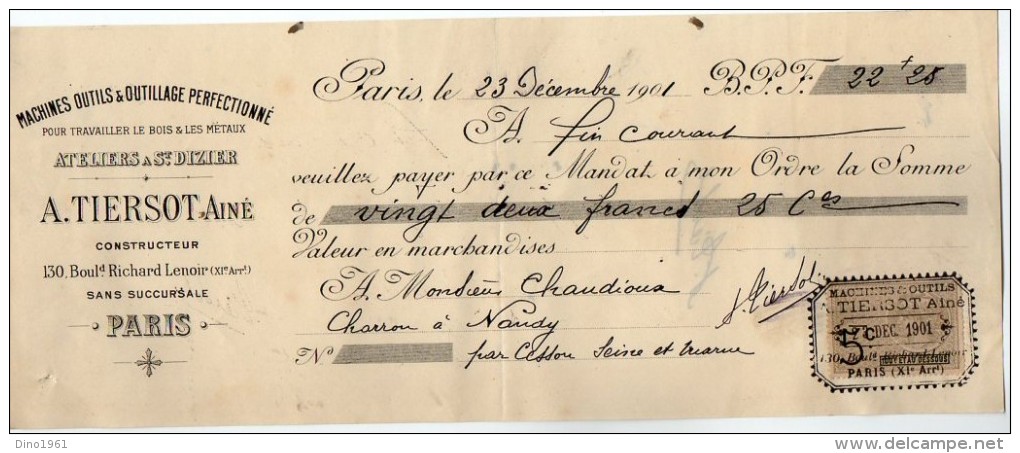 MACHINES OUTILS & OUTILLAGE PERFECTIONNÉ
POUR TRAVAILLER LE BOIS & LES MÉTAUX
ATELIERS A ST DIZIER
A. TIERSOT AINÉ
CONSTRUCTEUR
130, Boulᵈ Richard Lenoir (XIᵉ Arrᵗ)
SANS SUCCURSALE
PARIS
Paris, le 23 Décembre 1901 B.P.F. 22 + 25
A fin courant
veuillez payer par ce Mandat à mon Ordre la Somme
de vingt deux francs 25 Ces
Valeur en marchandises
A Monsieur Chaudioux
Charron à Nandy
Nº par Cesson Seine et Marne
A Tiersot
MACHINES & OUTILS
A. TIERSOT Ainé
DEC. 1901
5c
ET AU DESSOUS
130, Boulᵈ Richard Lenoir
PARIS (XIᵉ Arrᵗ)
Dino1961
delcampe.net